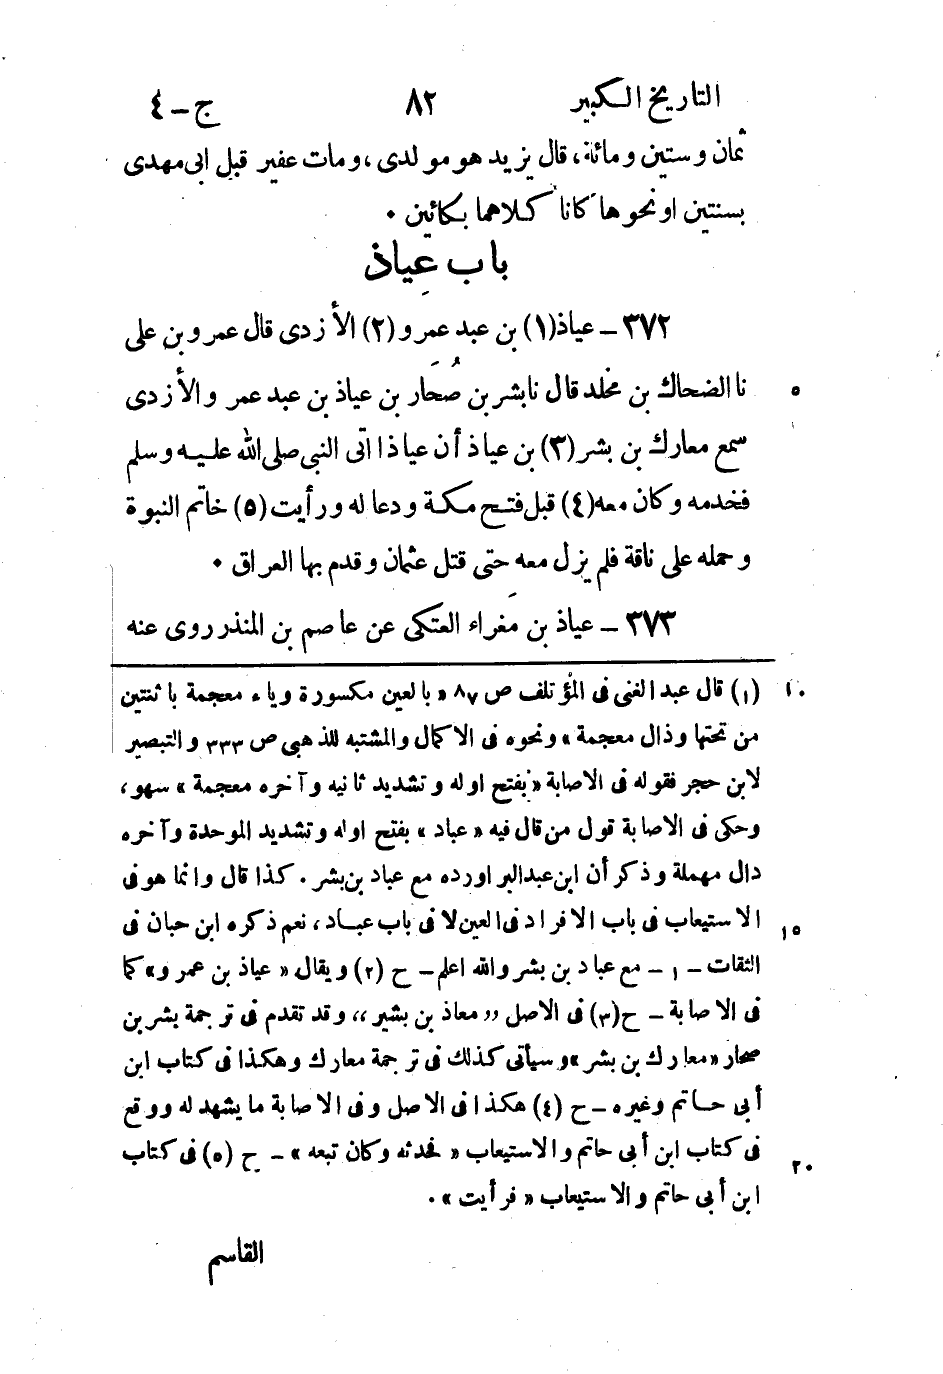 التاريخ الكبير ٨٢ ج - ٤
ثمان وستين ومائة، قال يزيد هو مولدى، ومات عفير قبل ابى مهدى
بسنتين او نحوها كانا كلاهما بكائين ٠
باب عياذ
٣٧٢ - عياذ(١) بن عبد عمرو(٢) الأزدى قال عمرو بن على
نا الضحاك بن مخلد قال نا بشر بن صُحار بن عياذ بن عبد عمرو الأزدى ٥
سمع معارك بن بشر(٣) بن عياذ أن عياذا اتى النبى صلى الله عليه وسلم
فخدمه وكان معه(٤) قبل فتح مكة ودعا له ورأيت(٥) خاتم النبوة
وحمله على ناقة فلم يزل معه حتى قتل عثمان وقدم بها العراق ٠
٣٧٣ - عياذ بن مغراء العتكى عن عاصم بن المنذر روى عنه
(١) قال عبد الغنى فى المؤتلف ص ٨٧ «بالعين مكسورة وياء معجمة باثنتين ١٠
من تحتها وذال معجمة» ونحوه فى الاكمال والمشتبه للذهبى ص ٣٣٣ والتبصير
لابن حجر فقوله فى الاصابة «بفتح اوله وتشديد ثانيه وآخره معجمة» سهو،
وحكى فى الاصابة قول من قال فيه «عباد» بفتح اوله وتشديد الموحدة وآخره
دال مهملة وذكر أن ابن عبد البر اورده مع عباد بن بشر. كذا قال وانما هو فى
الاستيعاب فى باب الافراد فى العين لا فى باب عباد، نعم ذكره ابن حبان فى ١٥
الثقات - ١ - مع عباد بن بشر والله اعلم - ح (٢) ويقال «عياذ بن عمرو» كما
فى الاصابة - ح(٣) فى الاصل ,, معاذ بن بشير ،، وقد تقدم فى ترجمة بشر بن
صحار «معارك بن بشر» وسيأتى كذلك فى ترجمة معارك وهكذا فى كتاب ابن
أبى حاتم وغيره - ح (٤) هكذا فى الاصل وفى الاصابة ما يشهد له ووقع
فى كتاب ابن أبى حاتم والاستيعاب «فحدثه وكان تبعه» - ح (٥) فى كتاب ٢٠
ابن أبى حاتم والاستيعاب «فرأيت».
القاسم